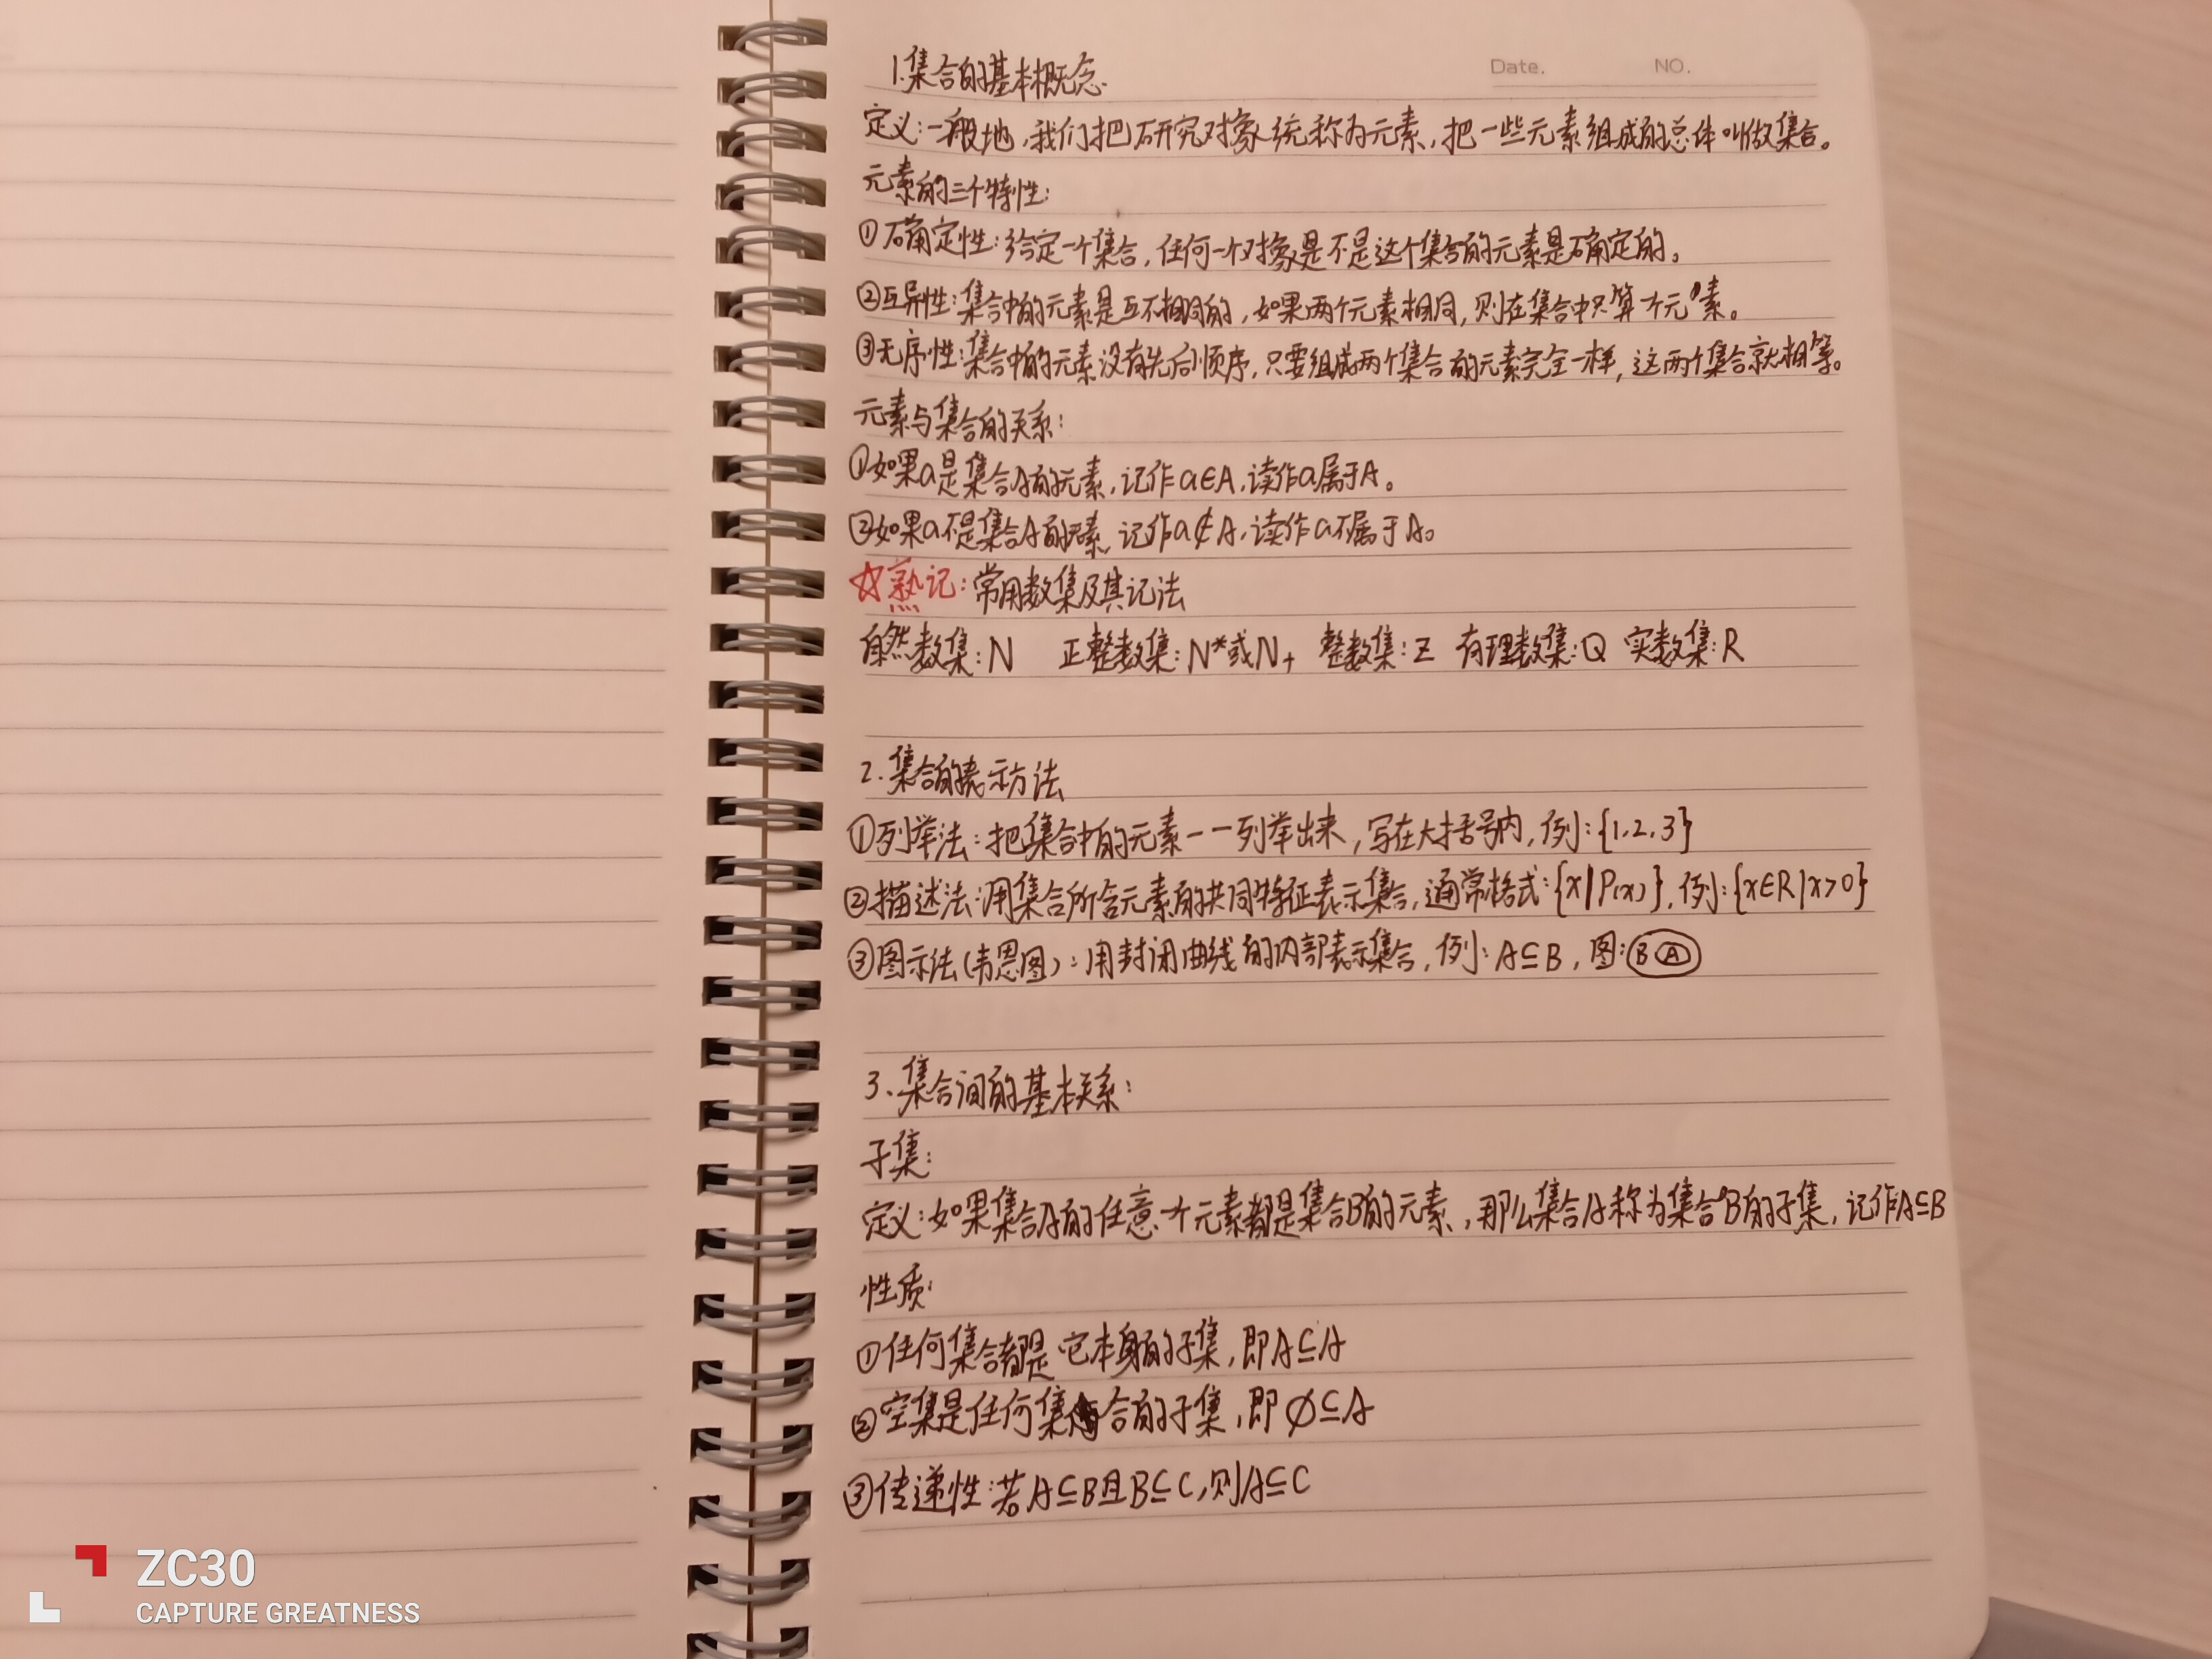 Date.
NO.
1.集合的基本概念.
定义:一般地,我们把研究对象统称为元素,把一些元素组成的总体叫做集合。
元素的三个特性:
①确定性:给定一个集合,任何一个对象是不是这个集合的元素是确定的。
②互异性:集合中的元素是互不相同的,如果两个元素相同,则在集合中只算一个元素。
③无序性:集合中的元素没有先后顺序,只要组成两个集合的元素完全一样,这两个集合就相等。
元素与集合的关系:
①如果a是集合A的元素,记作a∈A,读作a属于A。
②如果a不是集合A的元素,记作a∉A,读作a不属于A。
☆熟记:常用数集及其记法
自然数集:N 正整数集:N*或N+ 整数集:Z 有理数集:Q 实数集:R
2.集合的表示方法
①列举法:把集合中的元素一一列举出来,写在大括号内,例:{1,2,3}
②描述法:用集合所含元素的共同特征表示集合,通常格式:{x|P(x)},例:{x∈R|x>0}
③图示法(韦恩图):用封闭曲线的内部表示集合,例:A⊆B,图:B A
3、集合间的基本关系:
子集:
定义:如果集合A的任意一个元素都是集合B的元素,那么集合A称为集合B的子集,记作A⊆B
性质:
①任何集合都是它本身的子集,即A⊆A
②空集是任何集合的子集,即∅⊆A
③传递性:若A⊆B且B⊆C,则A⊆C
ZC30
CAPTURE GREATNESS